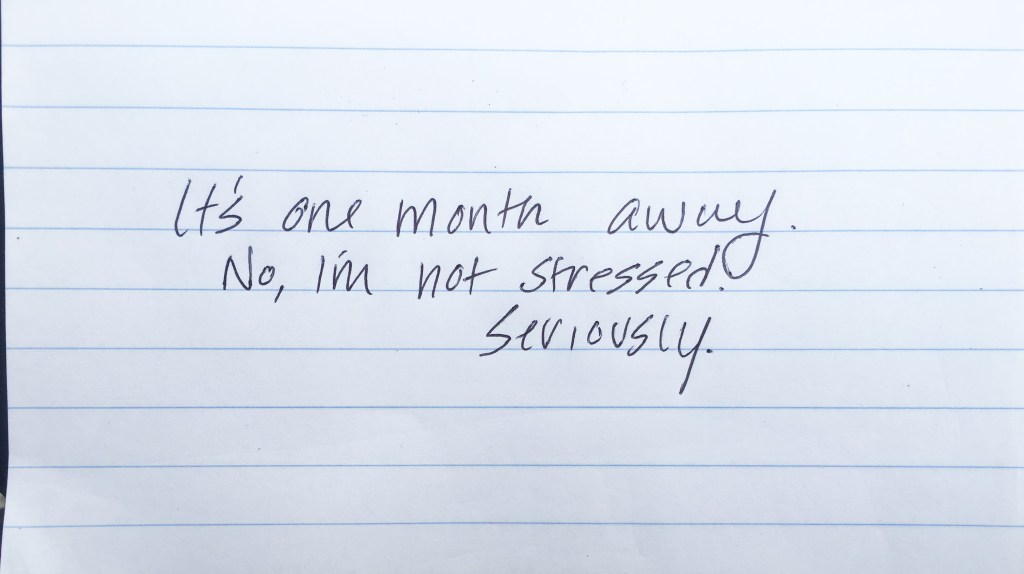 It's one month away.
No, I'm not stressed.
Seriously.